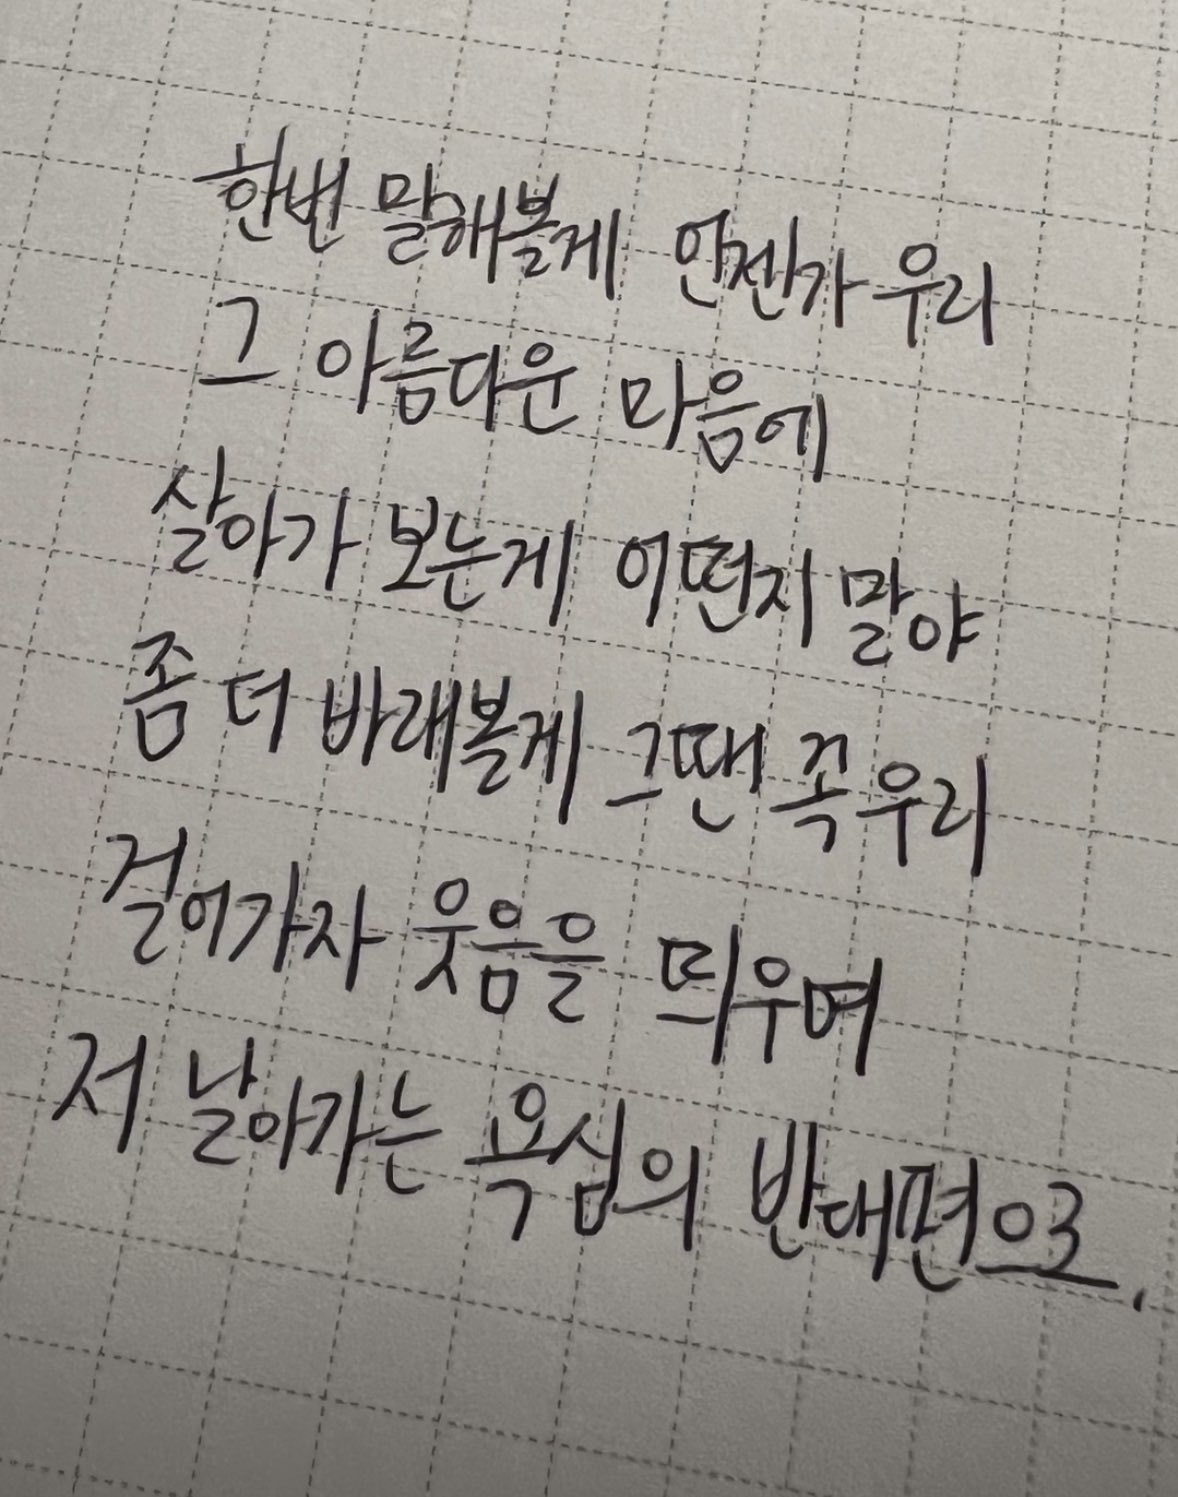 한번 말해볼게 언젠가 우리
그 아름다운 마음에
살아가 보는게 어떤지 말야
좀 더 바래볼게 그땐 꼭 우리
걸어가자 웃음을 띄우며
저 날아가는 욕심의 반대편으로.